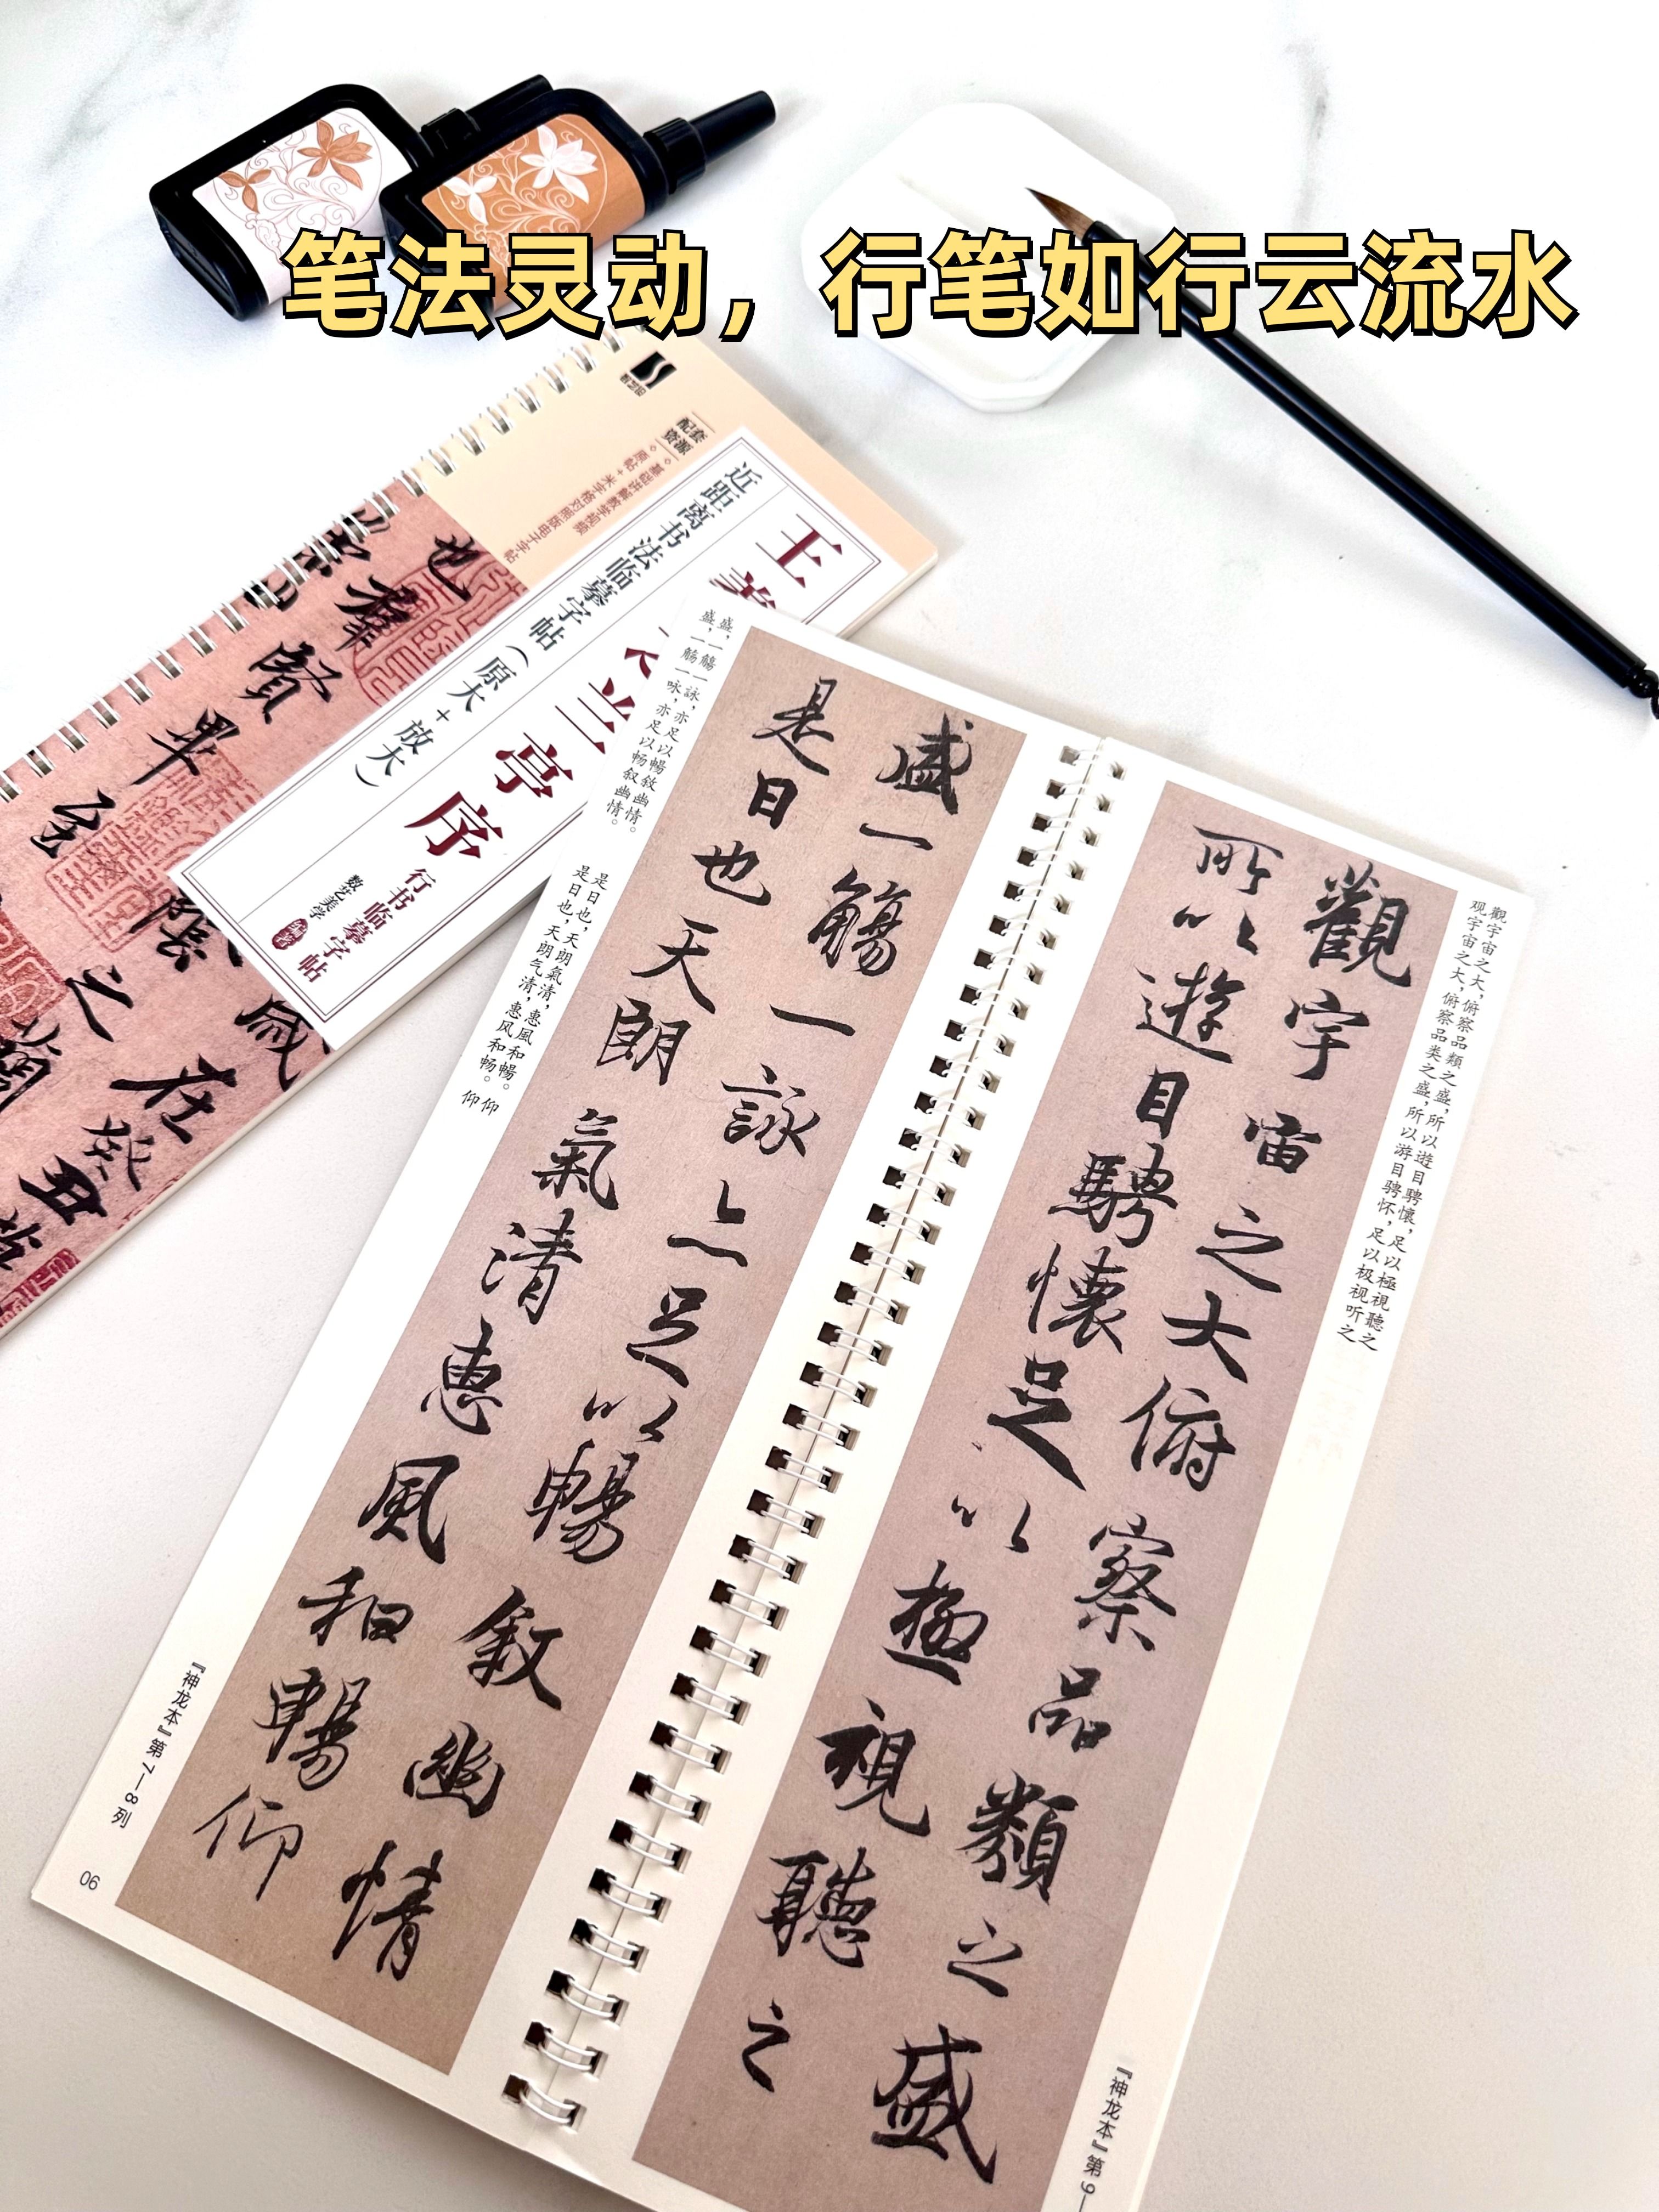 笔法灵动，行笔如行云流水
配套
资源
◇基础讲解教学视频
◇原帖+米字格对照版电子字帖
近距离书法临摹字帖（原大+放大）
王羲
兰亭序
行书临摹字帖
数艺美学 编著
也羣
賢畢至
之蘭
歲在癸丑
盛，一觴一詠，亦足以暢敘幽情。
盛，一觞一咏，亦足以畅叙幽情。
是日也，天朗氣清，惠風和暢。仰
是日也，天朗气清，惠风和畅。仰
盛一觴一詠亦足以暢敘幽情
是日也天朗氣清惠風和暢仰
『神龙本』第7—8列
06
觀宇宙之大，俯察品類之盛，所以遊目騁懷，足以極視聽之
观宇宙之大，俯察品类之盛，所以游目骋怀，足以极视听之
觀宇宙之大俯察品類之盛
所以遊目騁懷足以極視聽之
『神龙本』第9—